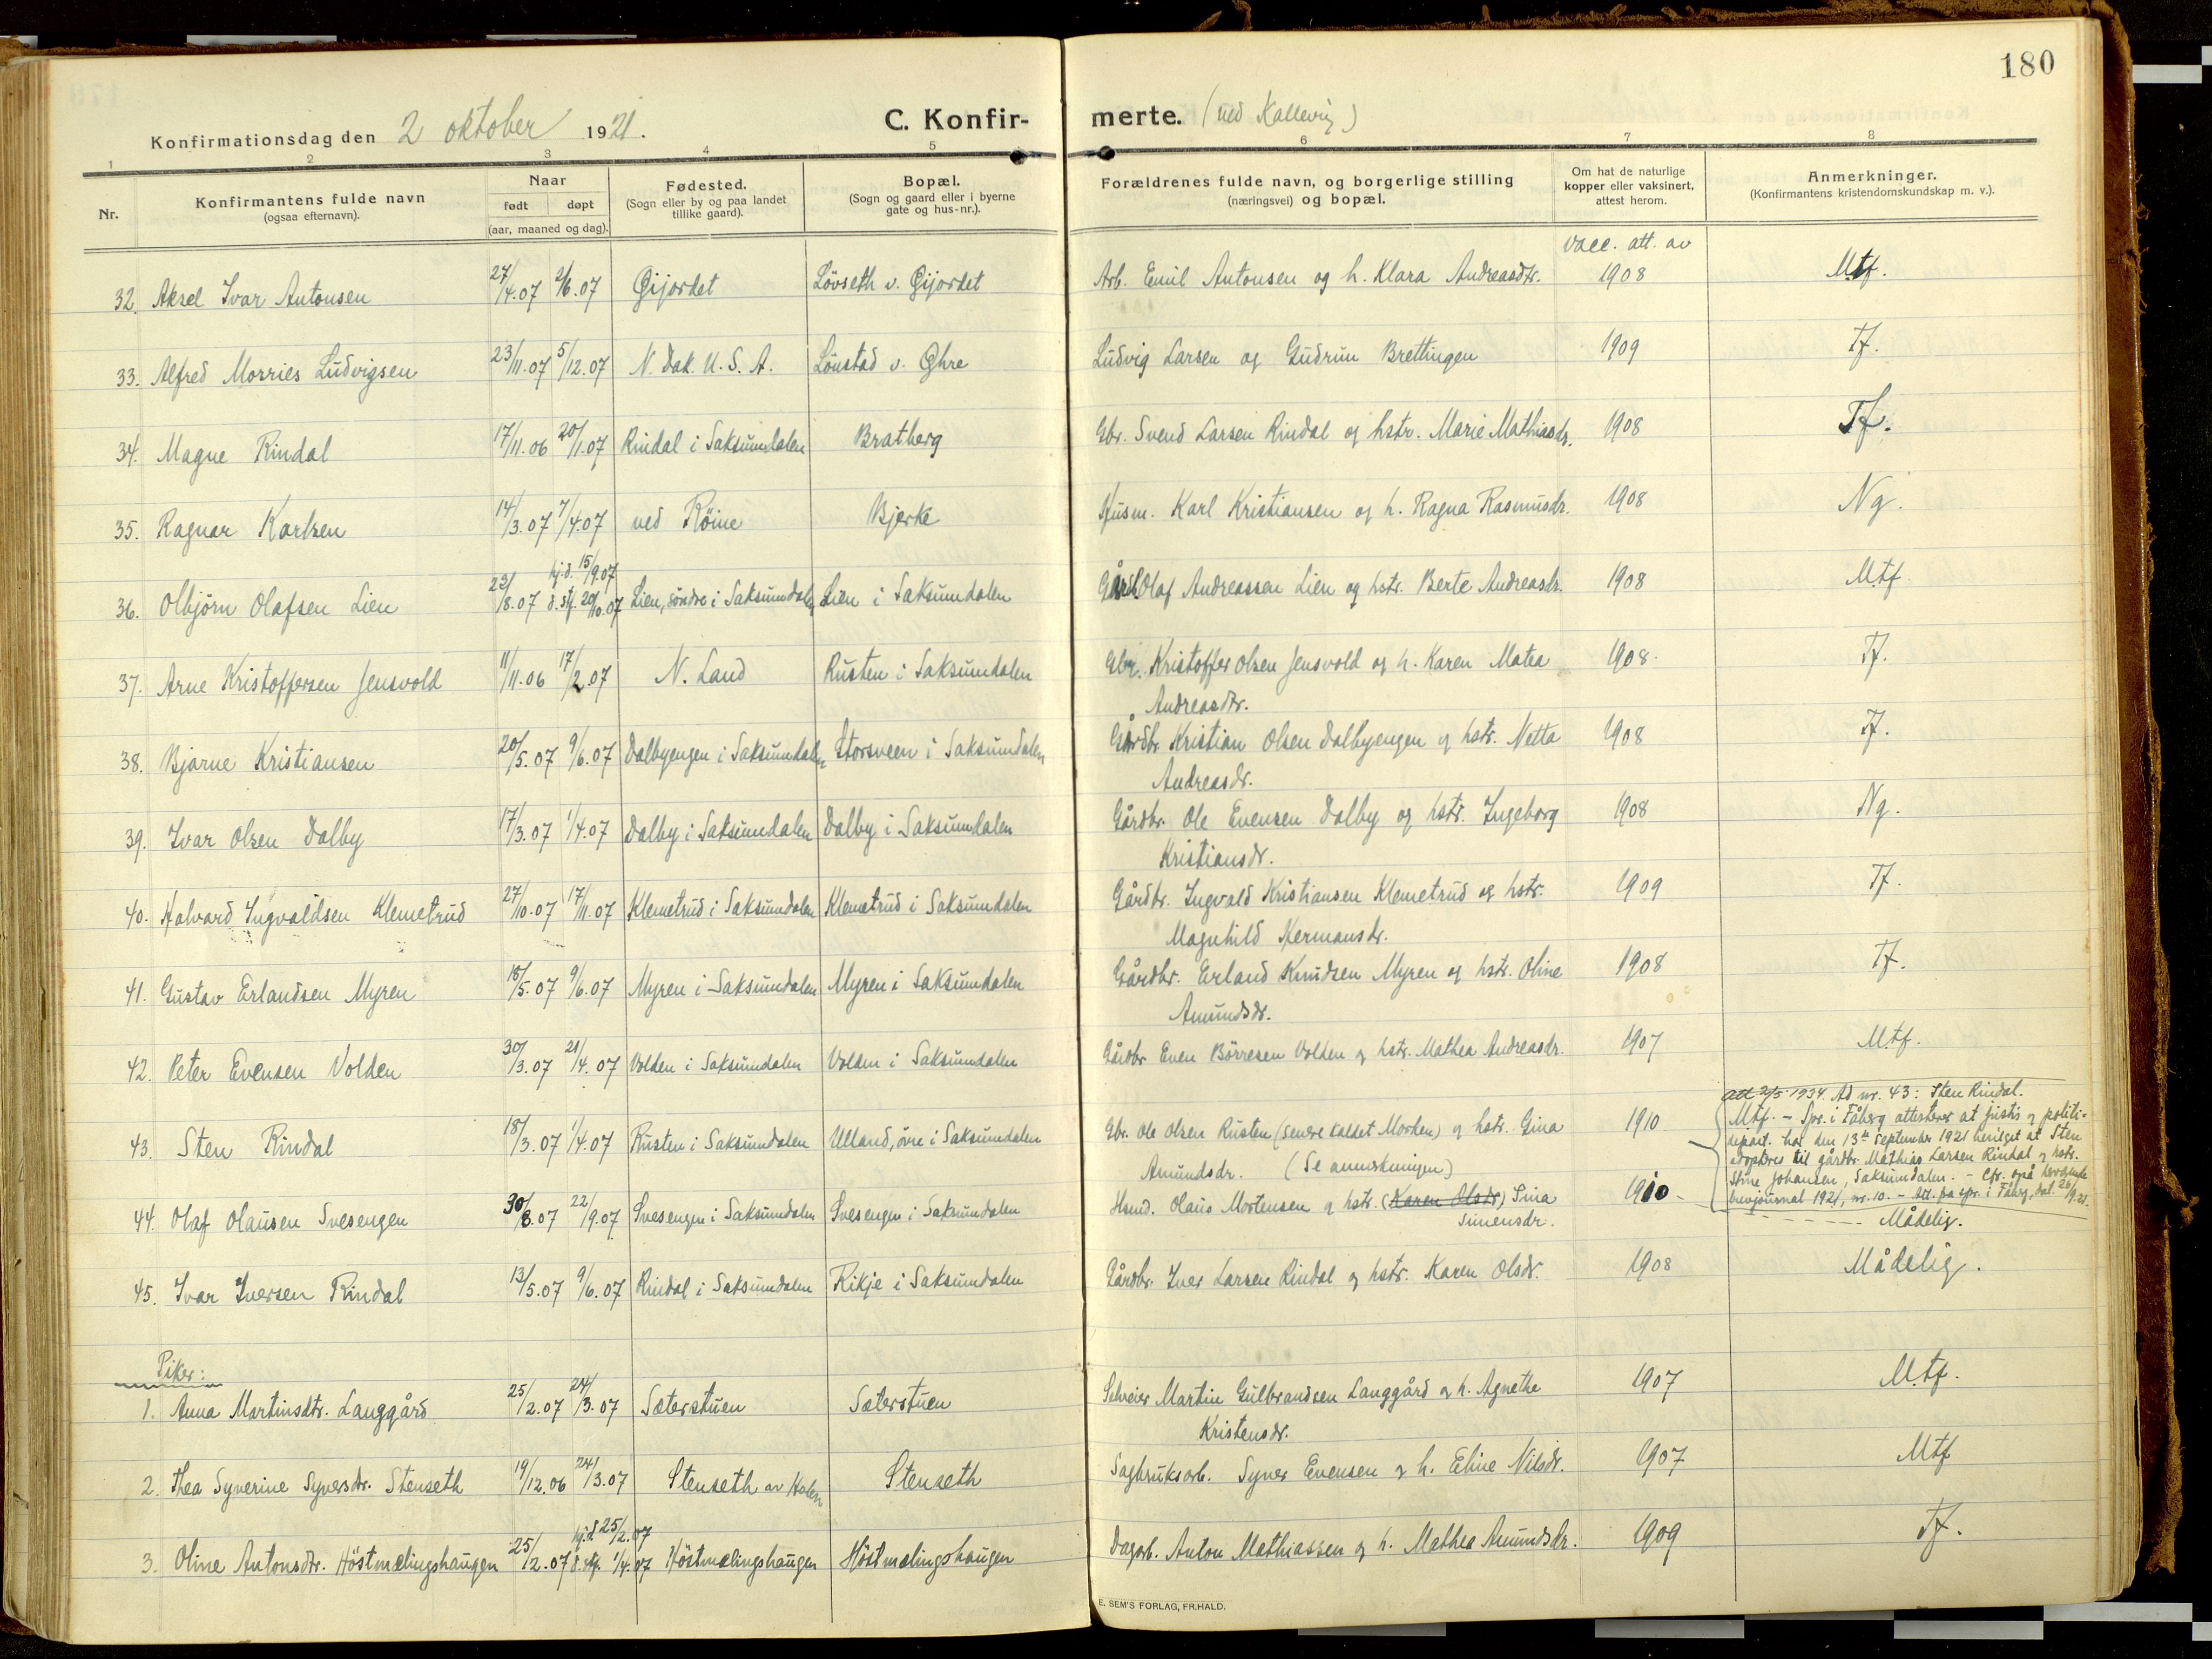 180
Konfirmationsdag den 2 oktober 1921. C. Konfir- merte. (ved Kallevig)
1 2 3 4 5 6 7 8
Nr.
Konfirmantens fulde navn
(ogsaa efternavn).
Naar
født døpt
(aar, maaned og dag).
Fødested.
(Sogn eller by og paa landet
tillike gaard).
Bopæl.
(Sogn og gaard eller i byerne
gate og hus-nr.).
Forældrenes fulde navn, og borgerlige stilling
(næringsvei) og bopæl.
Om hat de naturlige
kopper eller vaksinert,
attest herom.
Anmerkninger.
(Konfirmantens kristendomskundskap m. v.).
vacc. att. av
32. Aksel Ivar Antonsen 27/4.07 2/6.07 Gijordet Lövseth v. Gijordet Arb. Emil Antonsen og h. Klara Andreasdtr. 1908 Mtf.
33. Alfred Morries Ludvigsen 23/11.07 5/12.07 N. Dak. U. S. A. Lönstad v. Öhre Ludvig Larsen og Gudrun Brettingen 1909 Tf.
34. Magne Rindal 17/11.06 20/1.07 Rindal i Saksumdalen Bratberg Gbr. Svend Larsen Rindal og hstr. Marie Mathiasdr. 1908 Tf.
35. Ragnar Karlsen 14/3.07 7/4.07 ved Röine Bjerke Husm. Karl Kristiansen og h. Ragna Rasmusdr. 1908 Ng.
hj.d. 15/9.07
36. Olbjörn Olafsen Lien 23/8.07 d. stf. 20/10.07 Lien, söndre i Saksumdalen Lien i Saksumdalen Olaf Andreassen Lien og hstr. Berte Andreasdr. 1908 Mtf.
37. Arne Kristoffersen Jensvold 11/11.06 17/2.07 N. Land Rusten i Saksumdalen Gbr. Kristoffer Olsen Jensvold og h. Karen Matea 1908. Tf.
Andreasdtr.
38. Bjarne Kristiansen 20/5.07 9/6.07 Dalbyengen i Saksumdalen Storsveen i Saksumdalen Gårdbr. Kristian Olsen Dalbyengen og hstr. Netta 1908 Tf.
Andreasdr.
39. Ivar Olsen Dalby 17/3.07 1/4.07 Dalby i Saksumdalen Dalby i Saksumdalen Gårdbr. Ole Evensen Dalby og hstr. Ingeborg 1908 Ng.
Kristiansdr.
40. Halvard Ingvaldsen Klemetrud 27/10.07 17/11.07 Klemetrud i Saksumdalen Klemetrud i Saksumdalen Gårdbr. Ingvald Kristiansen Klemetrud og hstr. 1909 Tf.
Magnhild Hermansdr.
41. Gustav Erlandsen Myren 18/5.07 9/6.07 Myren i Saksumdalen Myren i Saksumdalen Gårdbr. Erland Knudsen Myren og hstr. Oline 1908 Tf.
Amundsdr.
42. Peter Evensen Volden 30/3.07 21/4.07 Volden i Saksumdalen Volden i Saksumdalen Gårdbr. Even Börresen Volden og hstr. Mathea Andreasdr. 1907 Mtf.
43. Sten Rindal 18/3.07 1/4.07 Rusten i Saksumdalen Ulland, övre i Saksumdalen Gbr. Ole Olsen Rusten (senere kaldet Morken) og hstr. Gina 1910
Amundsdr. (Se anmerkningen)
Att 2/5 1934. Ad nr. 43: Sten Rindal.
Mtf. - Spr. i Fåberg attesterer at justis og politi-
depart. har den 13de september 1921 bevilget at Sten
adopteres til gårdbr. Mathias Larsen Rindal og hstr.
Stine Johansen, Saksumdalen. - Cfr. også
brevjournal 1921, nr. 10. - Att. fra spr. i Fåberg, dat. 26/9.21.
44. Olaf Olausen Svesengen 30/8.07 22/9.07 Svesengen i Saksumdalen Svesengen i Saksumdalen Hsmd. Olaus Mortensen og hstr. (Karen Olsdr) Sina 1910 Mådelig.
Simensdr.
45. Ivar Iversen Rindal 13/5.07 9/6.07 Rindal i Saksumdalen Rikje i Saksumdalen Gårdbr. Iver Larsen Rindal og hstr. Karen Olsdr. 1908 Mådelig.
Piker:
1. Anna Martinsdtr. Langgård 25/2.07 24/3.07 Sæterstuen Sæterstuen Selveier Martin Gulbrandsen Langgård og h. Agnethe 1907 Mtf.
Kristensdr.
2. Thea Syverine Syversdr. Stenseth 19/12.06 24/3.07 Stenseth av Holen Stenseth Sagbruksarb. Syver Evensen og h. Eline Nilsdr. 1907 Mtf
hj.d 25/2.07
3. Oline Antonsdtr. Höstmælingshaugen 25/2.07 d. stf. 1/4.07 Höstmælingshaugen Höstmælingshaugen Dagarb. Anton Mathiassen og h. Mathea Amundsdr. 1909 Tf.
E. SEM'S FORLAG, FR.HALD.